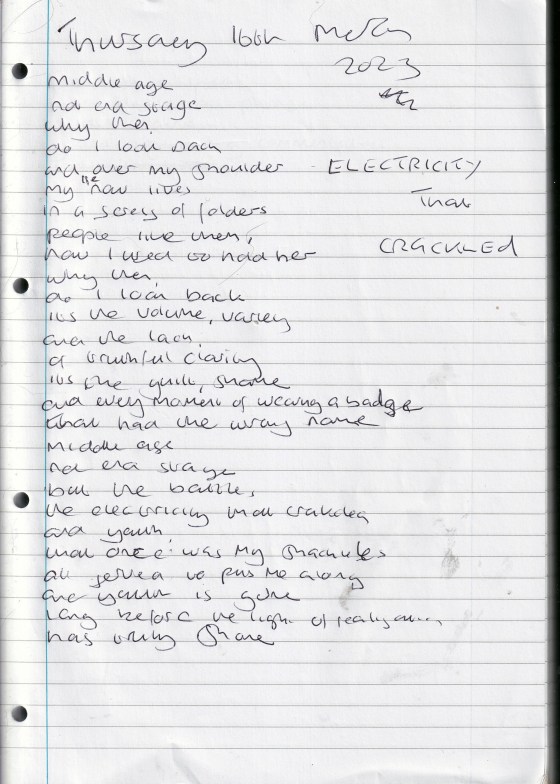 Thursday 16th March
2023
Middle age
not end stage
why then,
do I look back
and over my shoulder
ELECTRICITY
my the now lives
That
in a series of folders
people live then,
CRACKLED
how I used to hold her
why then,
do I look back
its the volume, variety
and the lack,
of truthful clarity
its the guilt, shame
and every moment of wearing a badge
that had the wrong name
Middle age
not end stage
but the battles,
the electricity that crakcled
and youth,
that once was my shackles
all served to push me along
and youth is gone
long before the light of realization
has truly shone